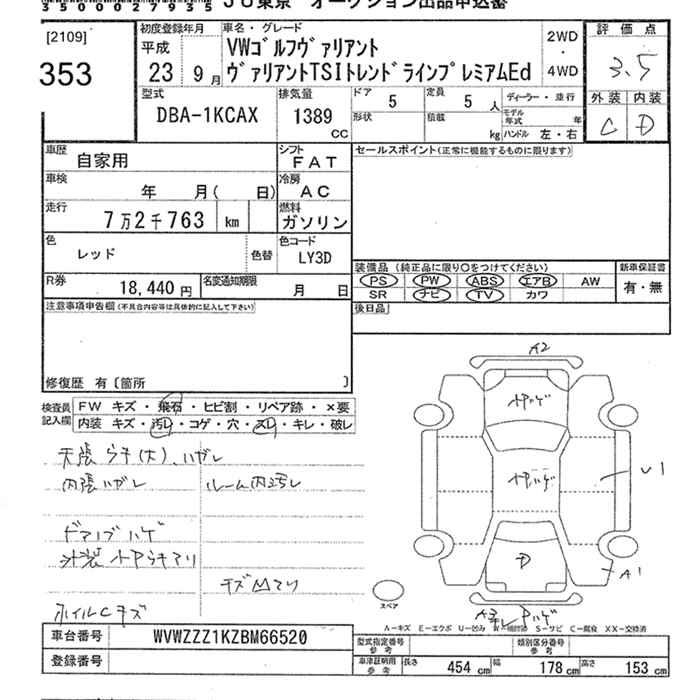 35000279355
JU東京 オークション出品申込書
[2109]
353
初度登録年月
平成
23年 9月
車名・グレード
VWゴルフヴァリアント
ヴァリアントTSIトレンドラインプレミアムEd
2WD
・
4WD
評価点
3.5
外装 内装
C D
型式
DBA-1KCAX
排気量
1389
CC
ドア
5
定員
5 人
形状
積載
kg
ディーラー・並行
モデル年式 年
ハンドル 左・右
車歴
自家用
シフト
FAT
車検
年 月( 日)
冷房
AC
走行
7万2千763 km
燃料
ガソリン
色
レッド
色替
色コード
LY3D
R券
18,440 円
名変通知期限
月 日
セールスポイント(正常に機能するものに限ります)
装備品 (純正品に限り○をつけてください)
PS PW ABS エアB AW
SR ナビ TV カワ
新車保証書
有・無
後日品
注意事項申告欄(不具合内容等は具体的に記入して下さい)
修復歴 有〔箇所 〕
検査員記入欄
FW キズ・飛石・ヒビ割・リペア跡・×要
内装 キズ・汚レ・コゲ・穴・スレ・キレ・破レ
天張ウキ(大)、ハガレ
内張ハガレ
ルーム内汚レ
ドアノブハゲ
外装小Pウキアリ
キズ凹アリ
ホイルCキズ
A2
小Pハゲ
小Pハゲ
U1
P
A1
スペア
A-キズ E-エクボ U-凹み W-補修跡 S-サビ C-腐食 XX-交換済
車台番号
WVWZZZ1KZBM66520
登録番号
型式指定番号
参考
類別区分番号
参考
車検証明用
参考
長さ 454 cm 幅 178 cm 高さ 153 cm